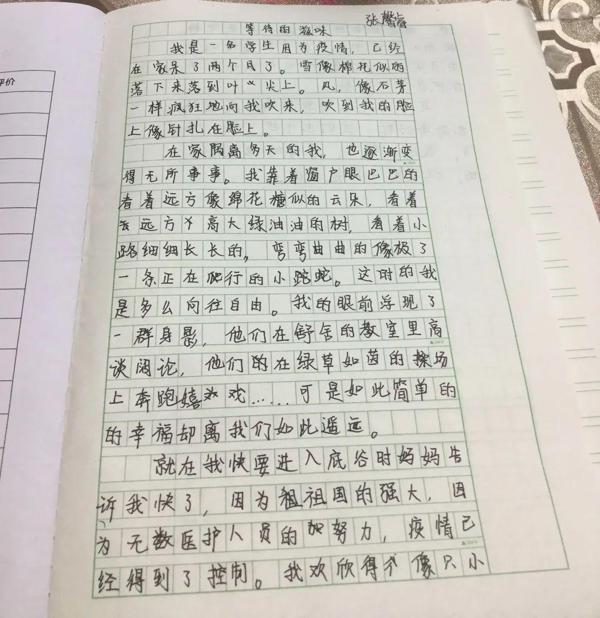 张馨睿
等待的滋味
我是一名学生因为疫情，已经
在家呆了两个月了。雪像棉花似的
落下来落到叶尖上。风，像石茅
一样疯狂地向我吹来，吹到我的脸
上像针扎在脸上。
在家隔离多天的我，也逐渐变
得无所事事。我靠着窗户眼巴巴的
看着远方像绵花糖似的云朵，看着
远方高大绿油油的树，看着小
路细细长长的。弯弯曲曲的像极了
一条正在爬行的小蛇。这时的我
是多么向往自由。我的眼前浮现了
一群身影，他们在舒舍的教室里高
谈阔论，他们的在绿草如茵的操场
上奔跑嬉戏……可是如此简单的
的幸福却离我们如此遥远。
就在我快要进入底谷时妈妈告
诉我快了，因为祖国的强大，因
为无数医护人员的努力，疫情已
经得到了控制。我欢欣得像只小
评价